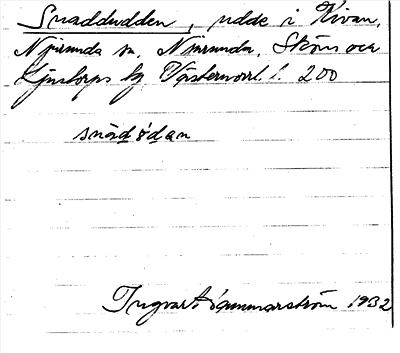 Snaddudden, udde i Kivan,
Njurunda sn, Njurunda, Sköns och
Ljustorps tg Västernorrl. l. 200
snàd ø̀dan
Ingvart Hammarström 1932